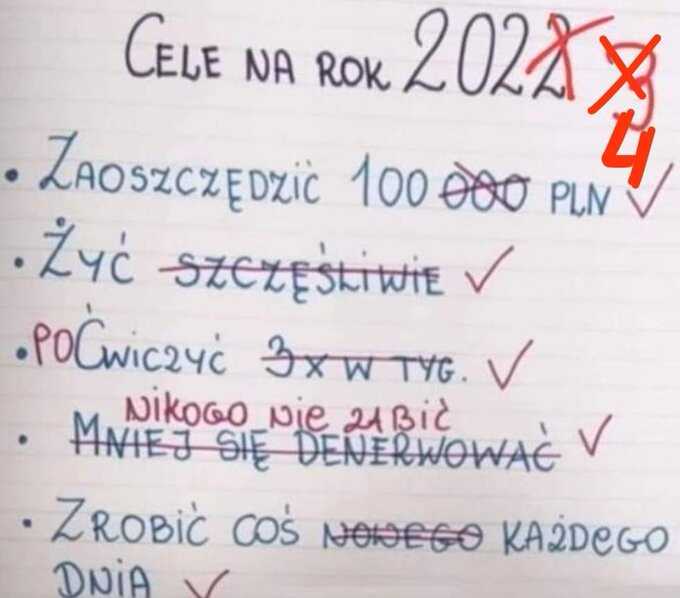 CELE NA ROK 2022 3
4
• ZAOSZCZĘDZIĆ 100 000 PLN ✓
• ŻYĆ SZCZĘŚLIWIE ✓
• POĆWICZYĆ 3 X W TYG. ✓
NIKOGO NIE ZABIĆ
• MNIEJ SIĘ DENERWOWAĆ ✓
• ZROBIĆ COŚ NOWEGO KAŻDEGO
DNIA ✓